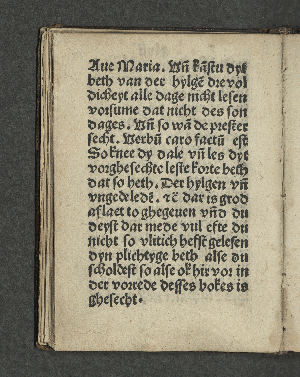 Aue Maria. Vñ kāstu dyt
beth van der hylgē dre vol
dicheyt alle dage nicht lesen
vorsume dat nicht des son
dages. Vñ so wā de prester
secht. Verbū caro factū est
So knee dy dale vñ les dyt
vorghesechte leste korte beth
dat so heth. Der hylgen vñ
vngedeledē. ⁊c̄ dar is grod
aflaet to ghegeuen vñd du
deyst dar mede vul efte du
nicht so vlitich hefst gelesen
dyn plichtyge beth alse du
scholdest so alse ok hir vor in
der vorrede desses bokes is
ghesecht.